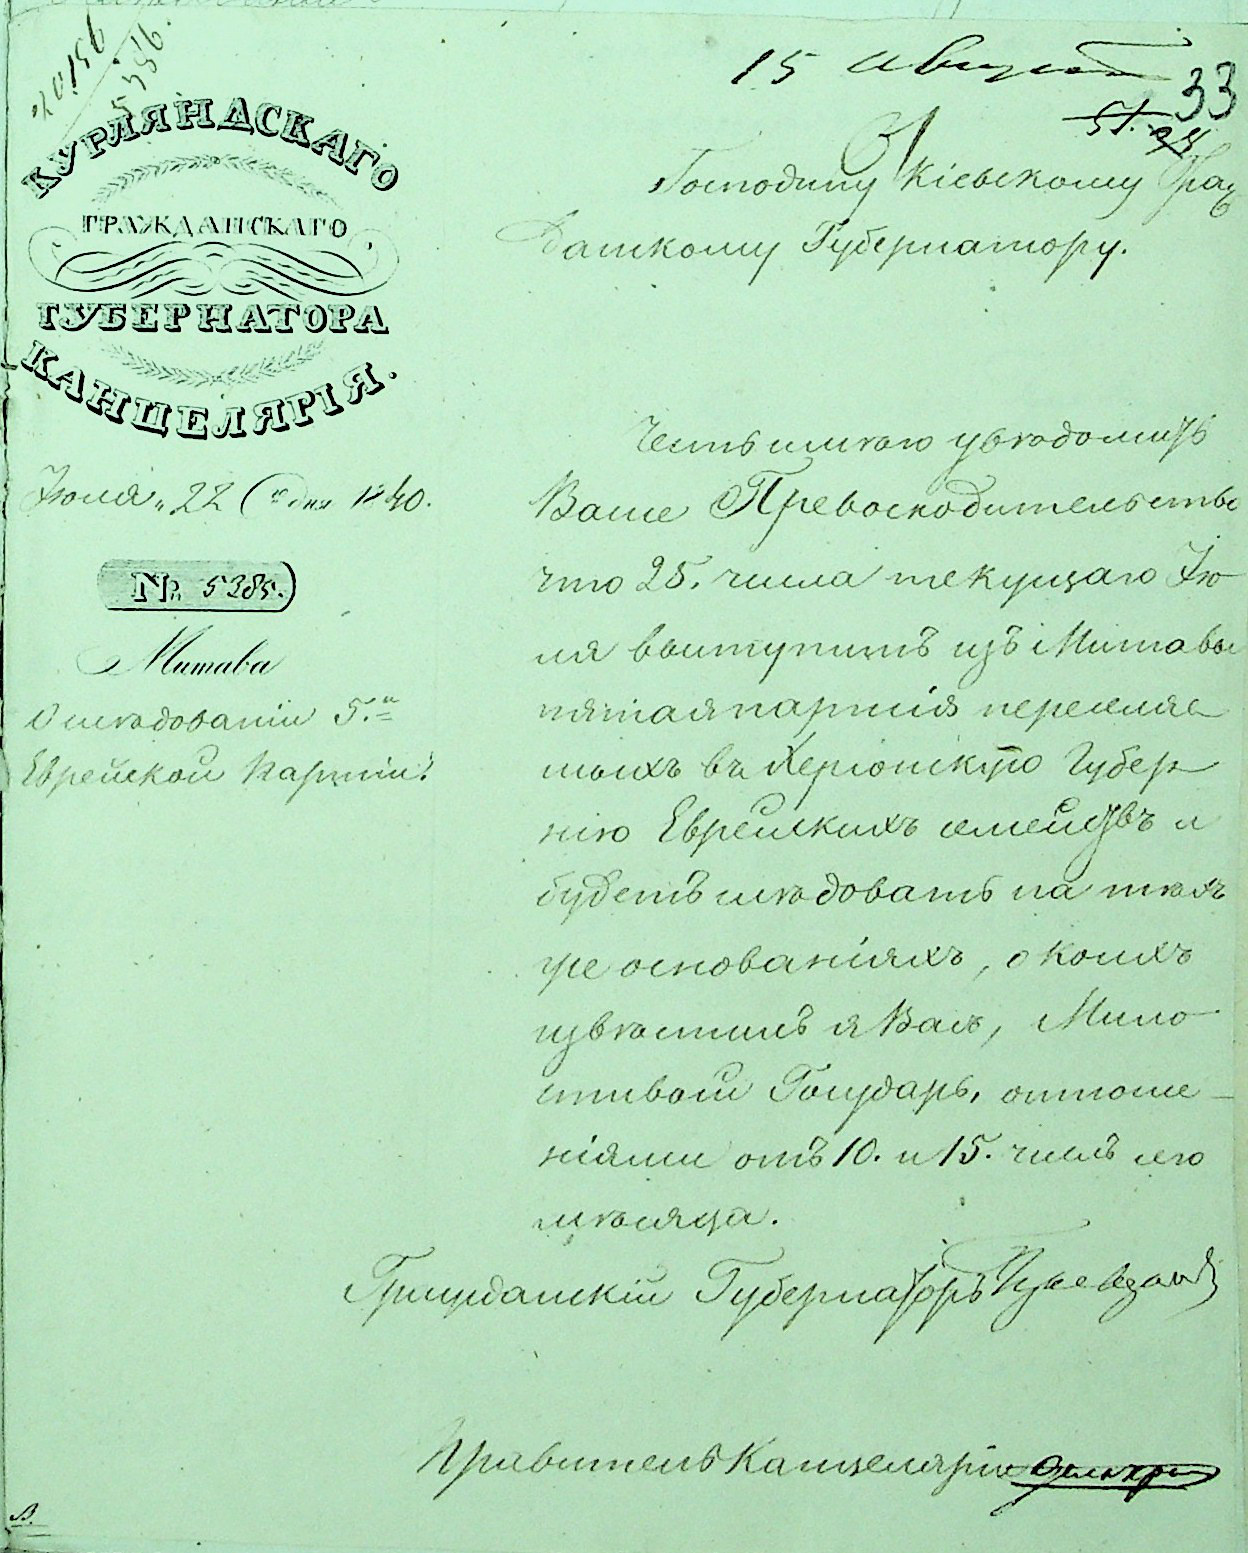 20156
5756.
15 Август
33
51. 94
КУРЛЯНДСКАГО
ГРАЖДАНСКАГО
ГУБЕРНАТОРА
КАНЦЕЛЯРІЯ.
Іюля „ 22 „ дня 1840.
№ 5385.
Митава
О слѣдованіи 5.й
Еврейской партіи.
Господину Кіевскому Граж
данскому Губернатору.
Честь имѣю увѣдомить
Ваше Превосходительство
что 25. числа текущаго Ію
ля выступитъ изъ Митавы
пятая партія переселяе
мыхъ въ Херсонскую Губер
нію Еврейскихъ семействъ и
будетъ слѣдовать на тѣхъ
же основаніяхъ, о коихъ
извѣстилъ я Васъ, Мило
стивый Государь, отноше-
ніями отъ 10. и 15. числъ сего
мѣсяца.
Гражданскій Губернаторъ
Правитель Канцеляріи
В.